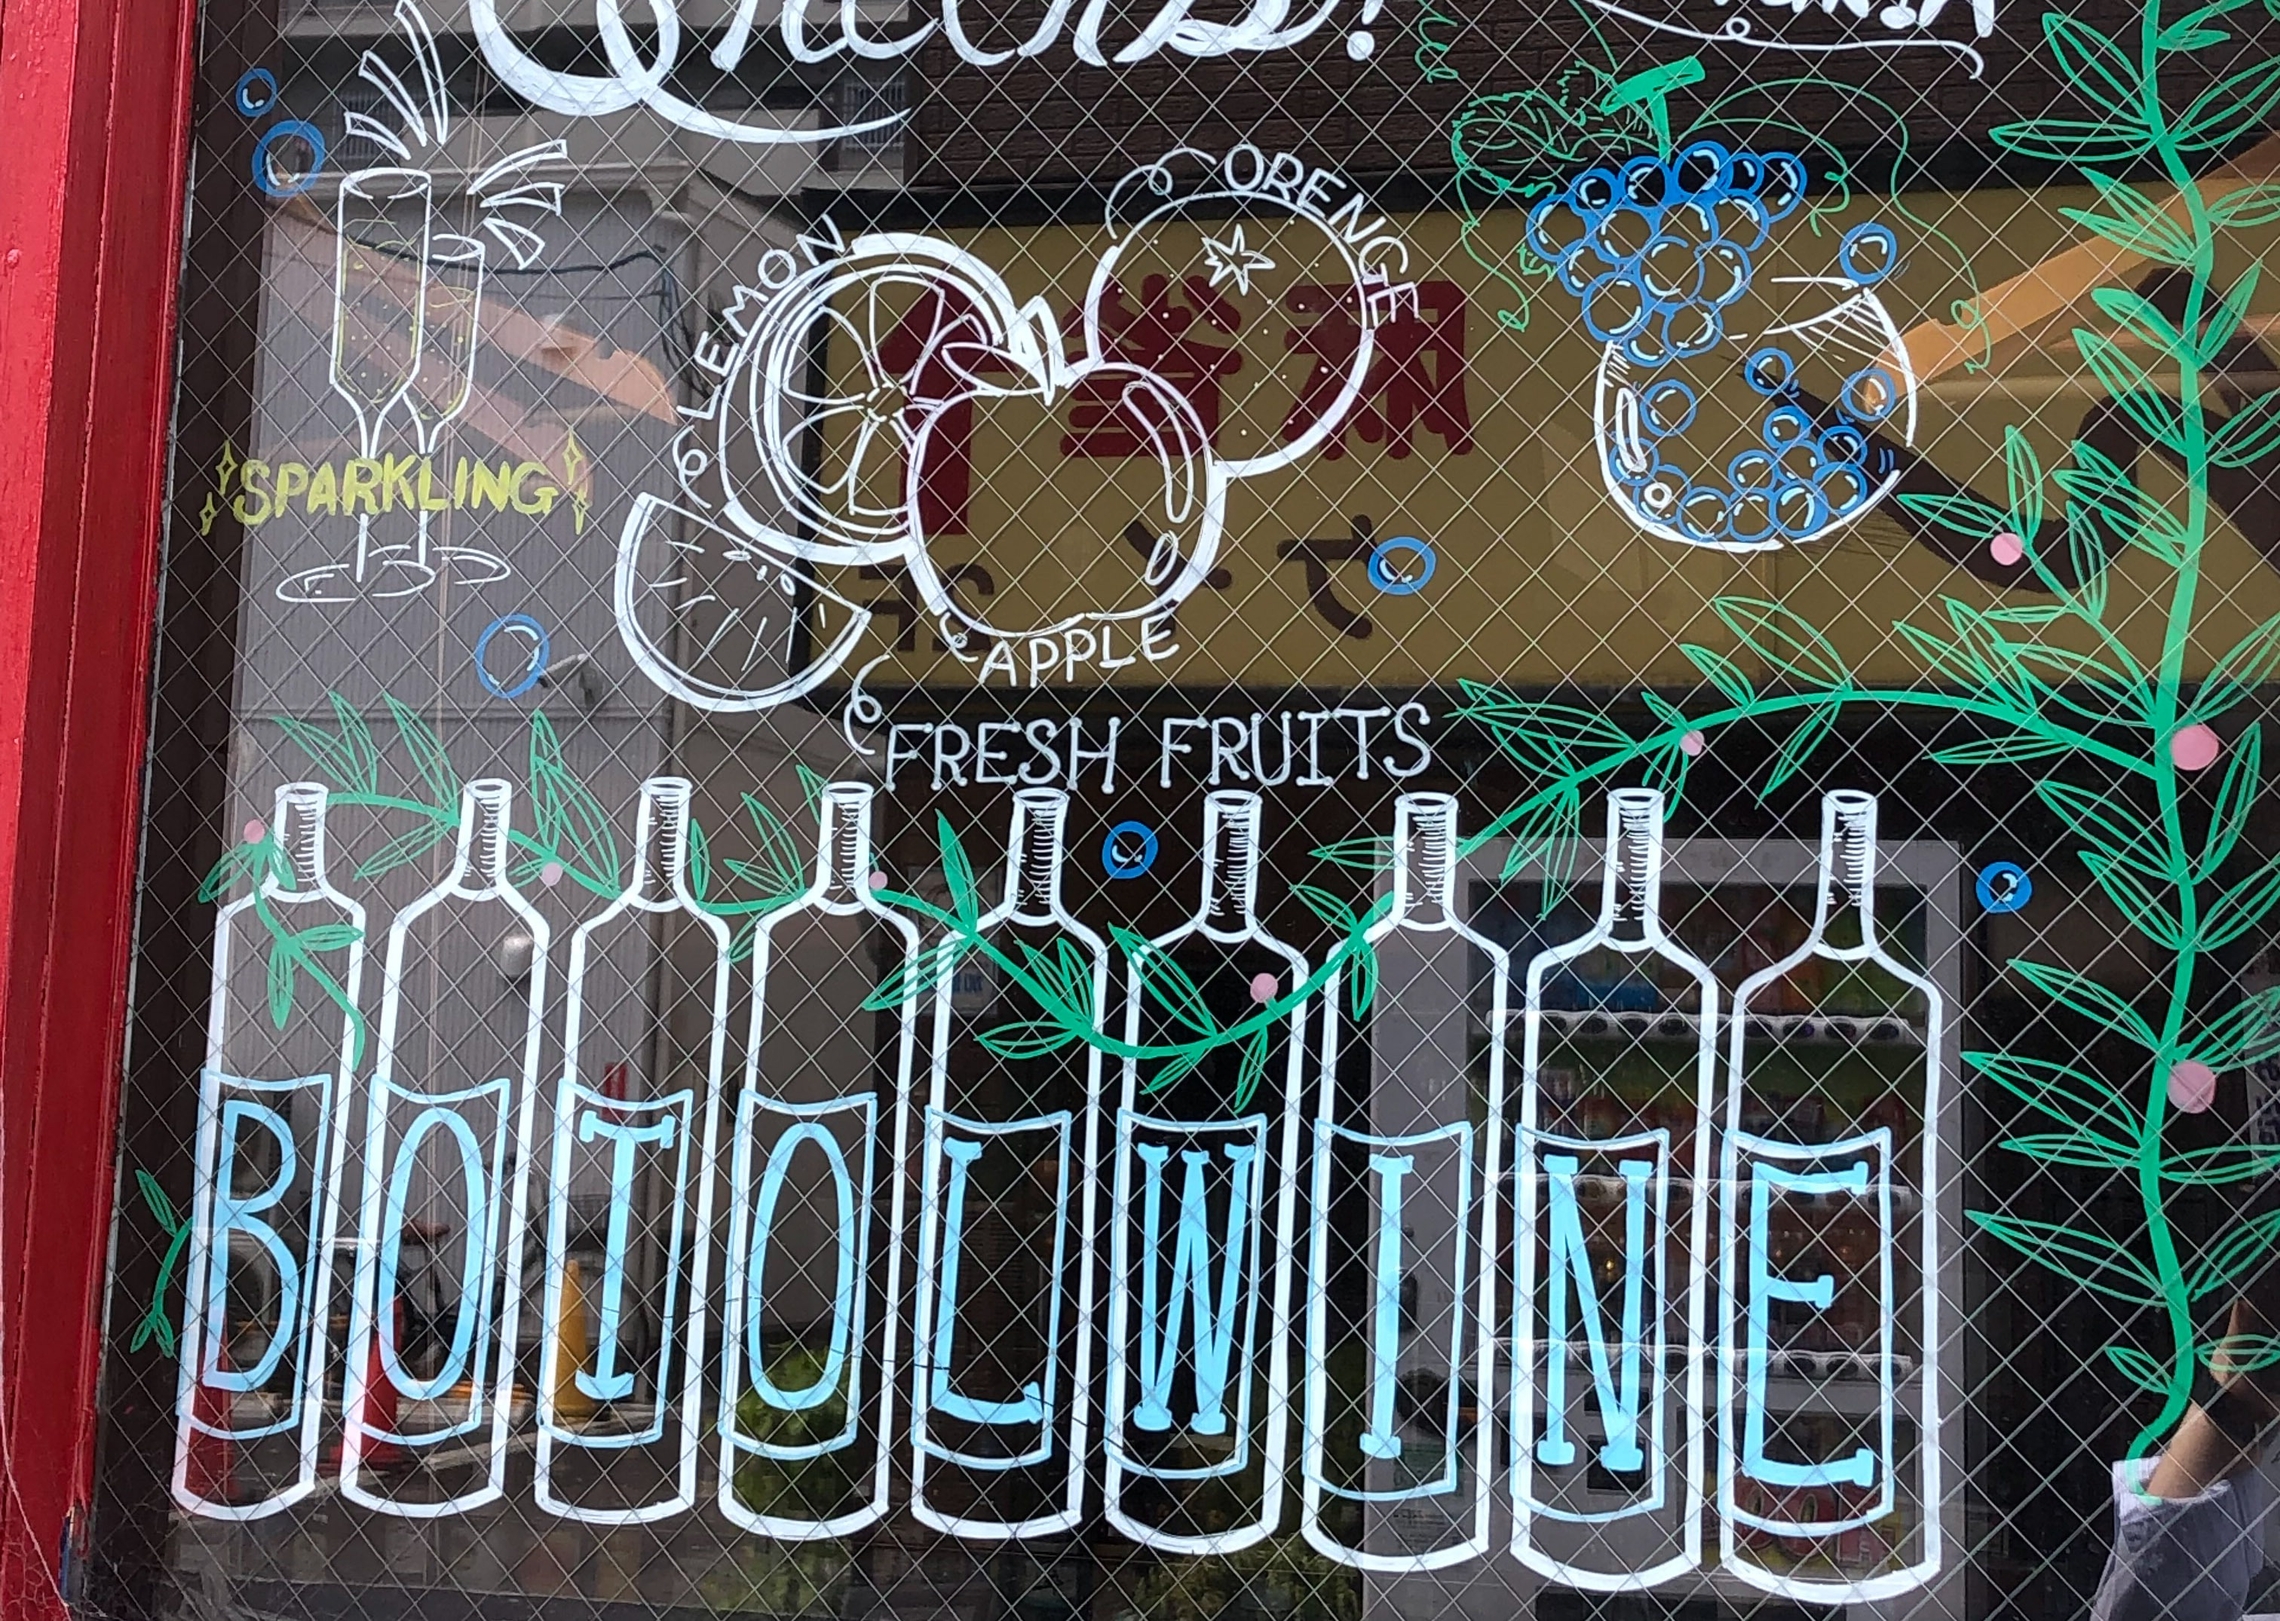 Cheers!
ORENGE
LEMON
SPARKLING
APPLE
FRESH FRUITS
BOTOLWINE